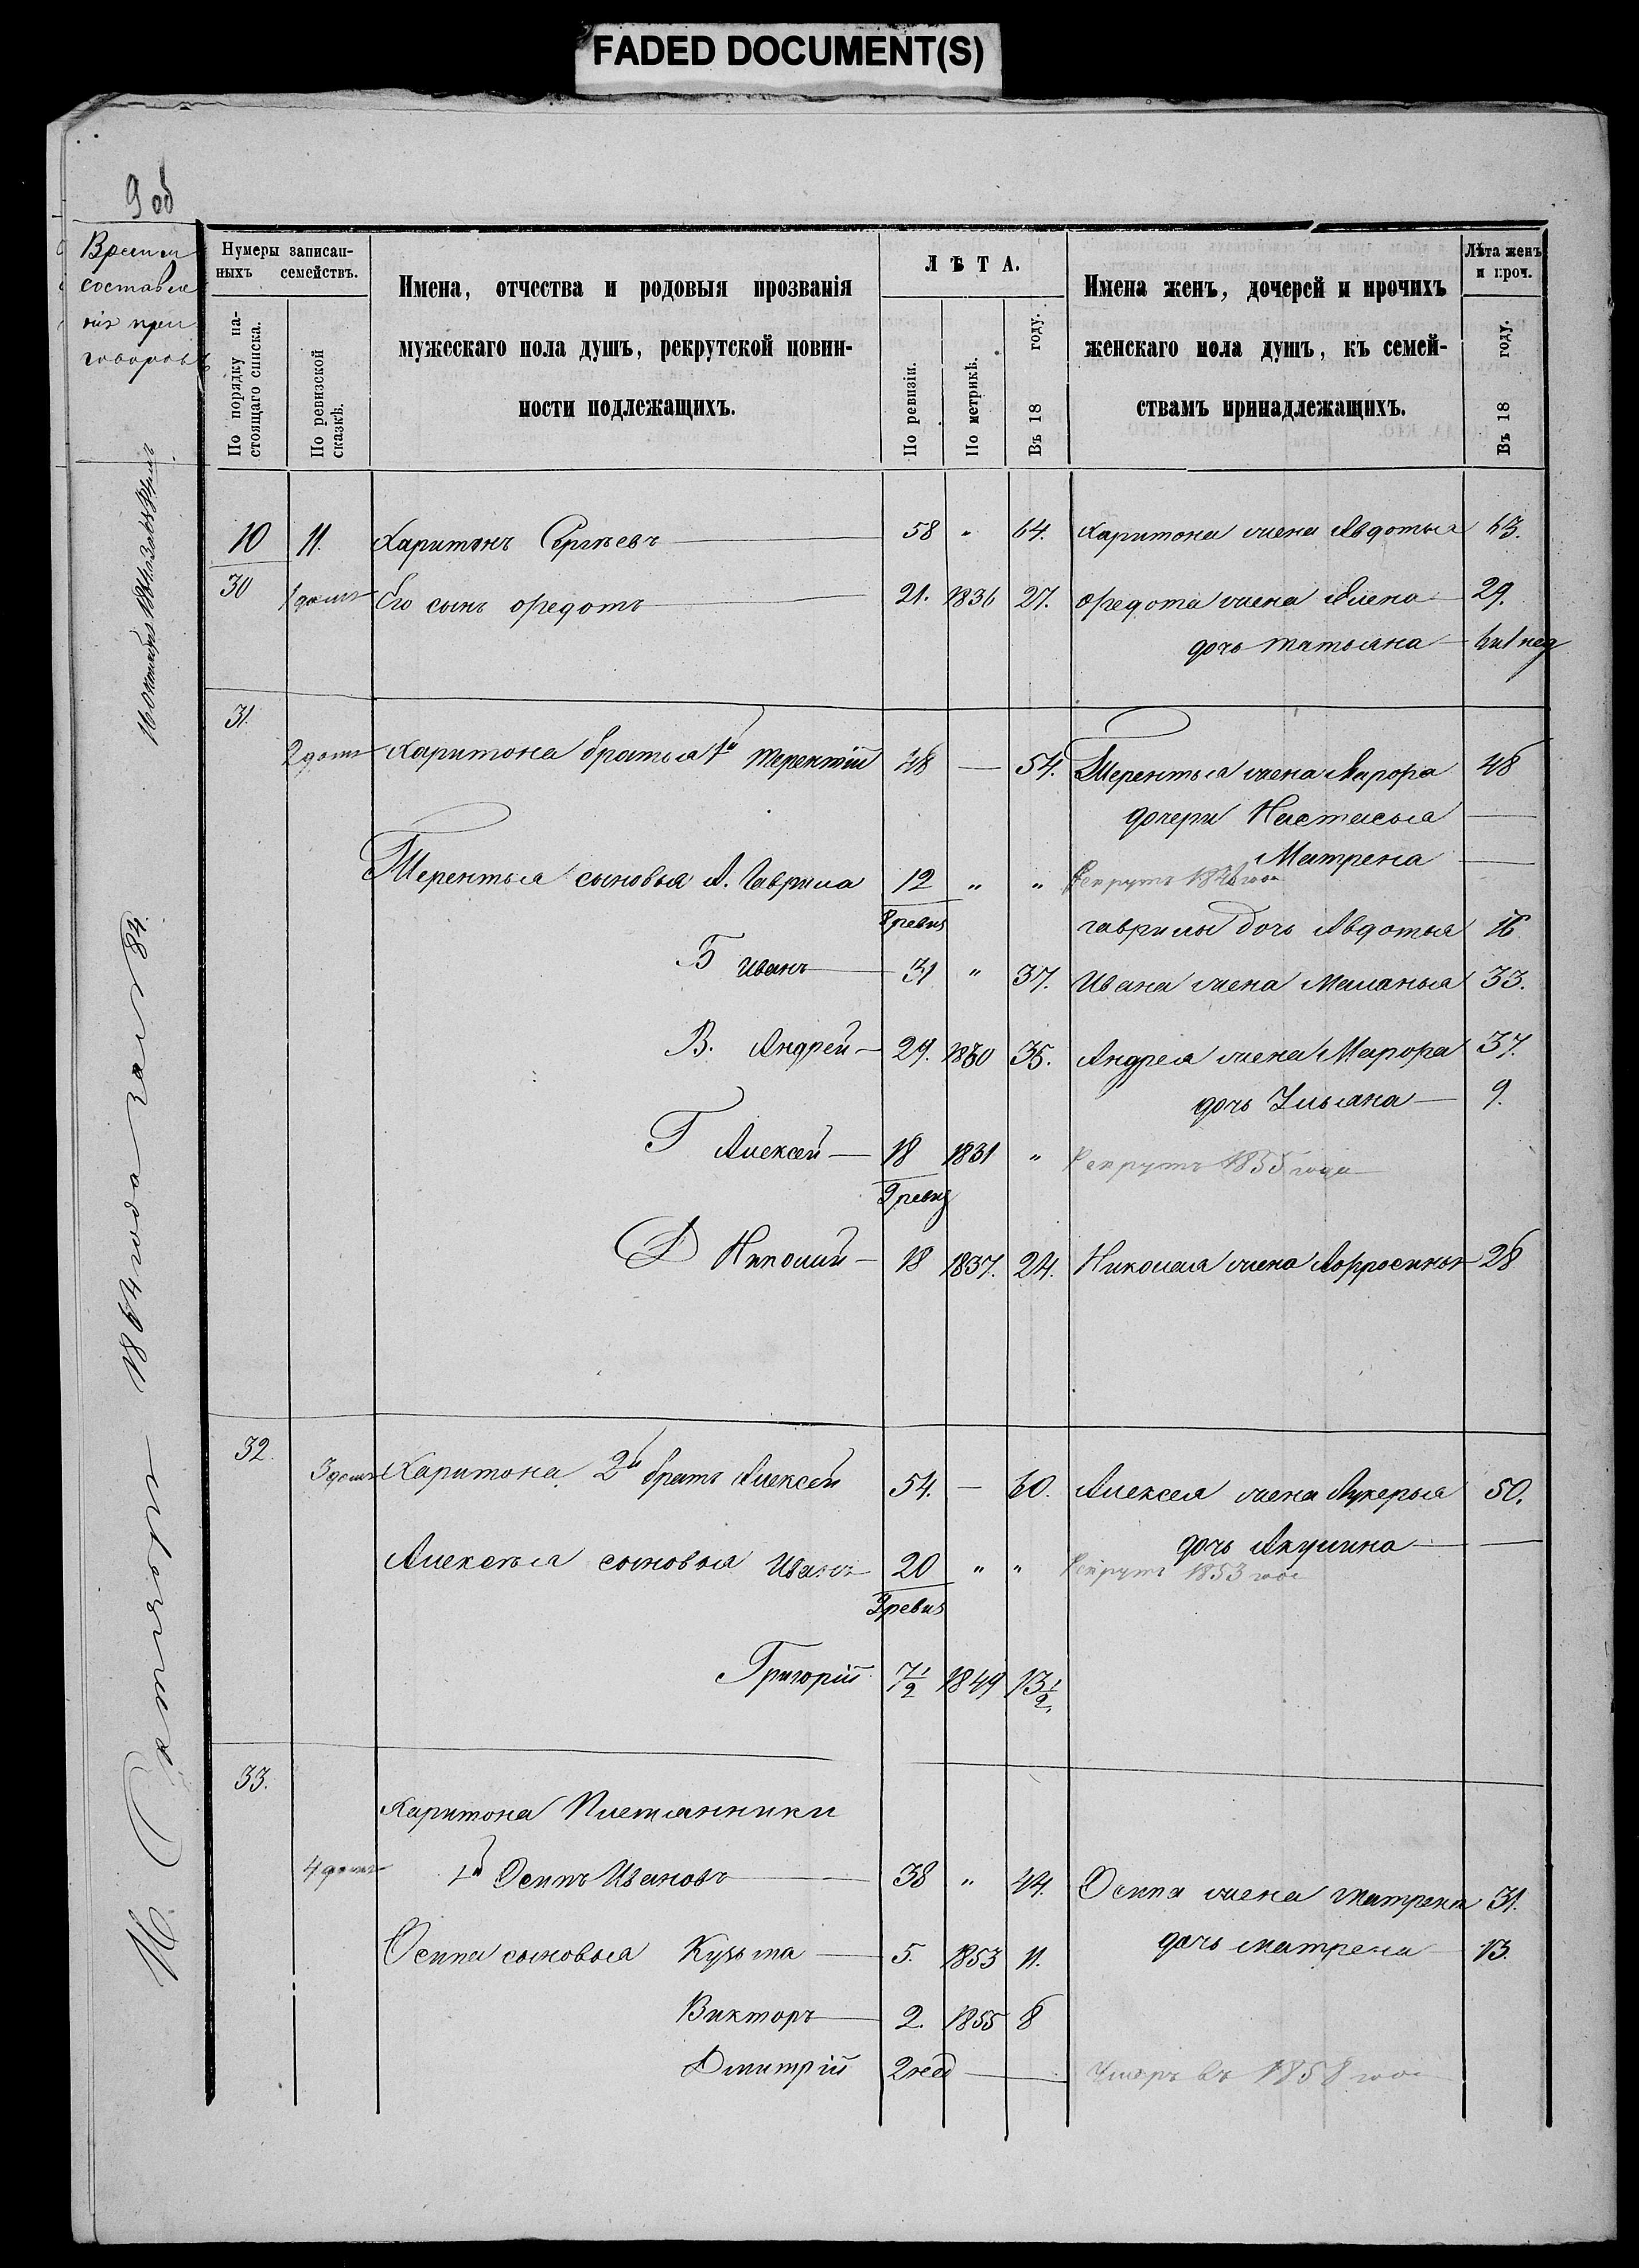 FADED DOCUMENT(S)
9 об
Времен
составле
нія при
говоровъ
Нумеры записан-
ныхъ семействъ.
По порядку на-
стоящаго списка.
По ревизской
сказкѣ.
Имена, отчества и родовыя прозванія
мужескаго пола душъ, рекрутской повин-
ности подлежащихъ.
ЛѢТА.
По ревизіи.
По метрикѣ.
Въ 18 году.
Имена женъ, дочерей и прочихъ
женскаго пола душъ, къ семей-
ствамъ принадлежащихъ.
Лѣта женъ
и проч.
Въ 18 году.
10 11. Харитонъ Сергѣевъ 58 „ 64. Харитона жена Авдотья 63.
30 1 домъ Его сынъ Федотъ 21. 1836 27. Федота жена Алена 29.
дочь Татьяна
31.
2 домъ Харитона братья 1й Терентій 48 — 54. Терентья жена Марфа 48
дочери Настасья —
Матрена —
Терентья сыновья А. Гаврила 12 „ „ Рекрутъ года
8 ревиз Гаврилы дочь Авдотья 16
Б Иванъ 31 „ 37. Ивана жена Маланья 33.
В. Андрей 29. 1830 35. Андрея жена Марфа 37.
дочь Ульяна 9.
Г Алексей 18 1831 „ Рекрутъ 1855 года
9 ревиз
Д Николай 18 1837. 24. Николая жена Афросинья 28
32.
3 домъ Харитона 2й братъ Алексей 54. — 60. Алексея жена Лукерья 50.
дочь Акулина —
Алексѣя сыновья Иванъ 20 „ „ Рекрутъ 1853 года
9 ревиз
Григорій 7½ 1849 13½.
33.
Харитона Племянники
4 домъ 1й Осипъ Ивановъ 38 „ 44. Осипа жена Матрена 31.
Осипа сыновья Кузьма 5. 1853 11. дочь Матрена 13.
Викторъ 2. 1855 8
Дмитрій 2 нед — — Умеръ въ 1858 году
16 октября
1864 года за № 84.